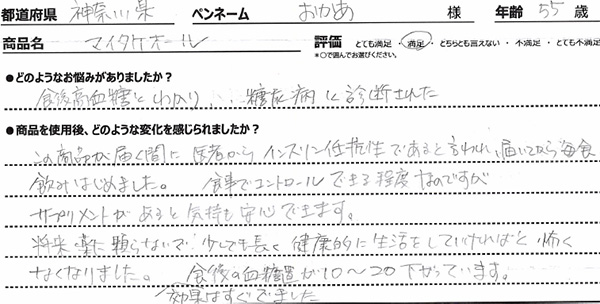 都道府県 神奈川県 ペンネーム おかあ 様 年齢 55 歳
商品名 マイタケオール 評価 とても満足・満足・どちらとも言えない・不満足・とても不満足
*○で囲んでお選びください。
●どのようなお悩みがありましたか?
食後高血糖とわかり... 糖尿病と診断された
●商品を使用後、どのような変化を感じられましたか?
この商品が届く間に 医者から インスリン抵抗性であると言われ、届いてから毎食
飲みはじめました。 食事でコントロールできる程度なのですが
サプリメントがあると気持も安心できます。
将来 薬に頼らないで 少しでも長く 健康的に生活をしていければと 怖く
なくなりました。 食後の血糖値が10〜20下がっています。
効果はすぐでました